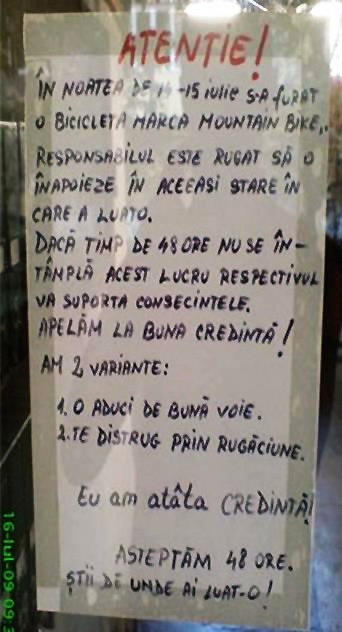 ATENȚIE!
ÎN NOATEA DE 14-15 iulie S-A FURAT
O BICICLETA MARCA MOUNTAIN BIKE,..
RESPONSABILUL ESTE RUGAT SĂ O
ÎNAPOIEZE ÎN ACEEASI STARE ÎN
CARE A LUATO.
DACĂ TIMP DE 48 ORE NU SE ÎN-
TÂMPLĂ ACEST LUCRU RESPECTIVUL
VA SUPORTA CONSECINTELE.
APELĂM LA BUNA CREDINTĂ!
AM 2 VARIANTE:
1. O ADUCI DE BUNĂ VOIE.
2. TE DISTRUG PRIN RUGĂCIUNE.
Eu am atâta CREDINTĂ!
ASTEPTĂM 48 ORE.
ȘTII DE UNDE AI LUAT-O!
16-Iul-09 09:3